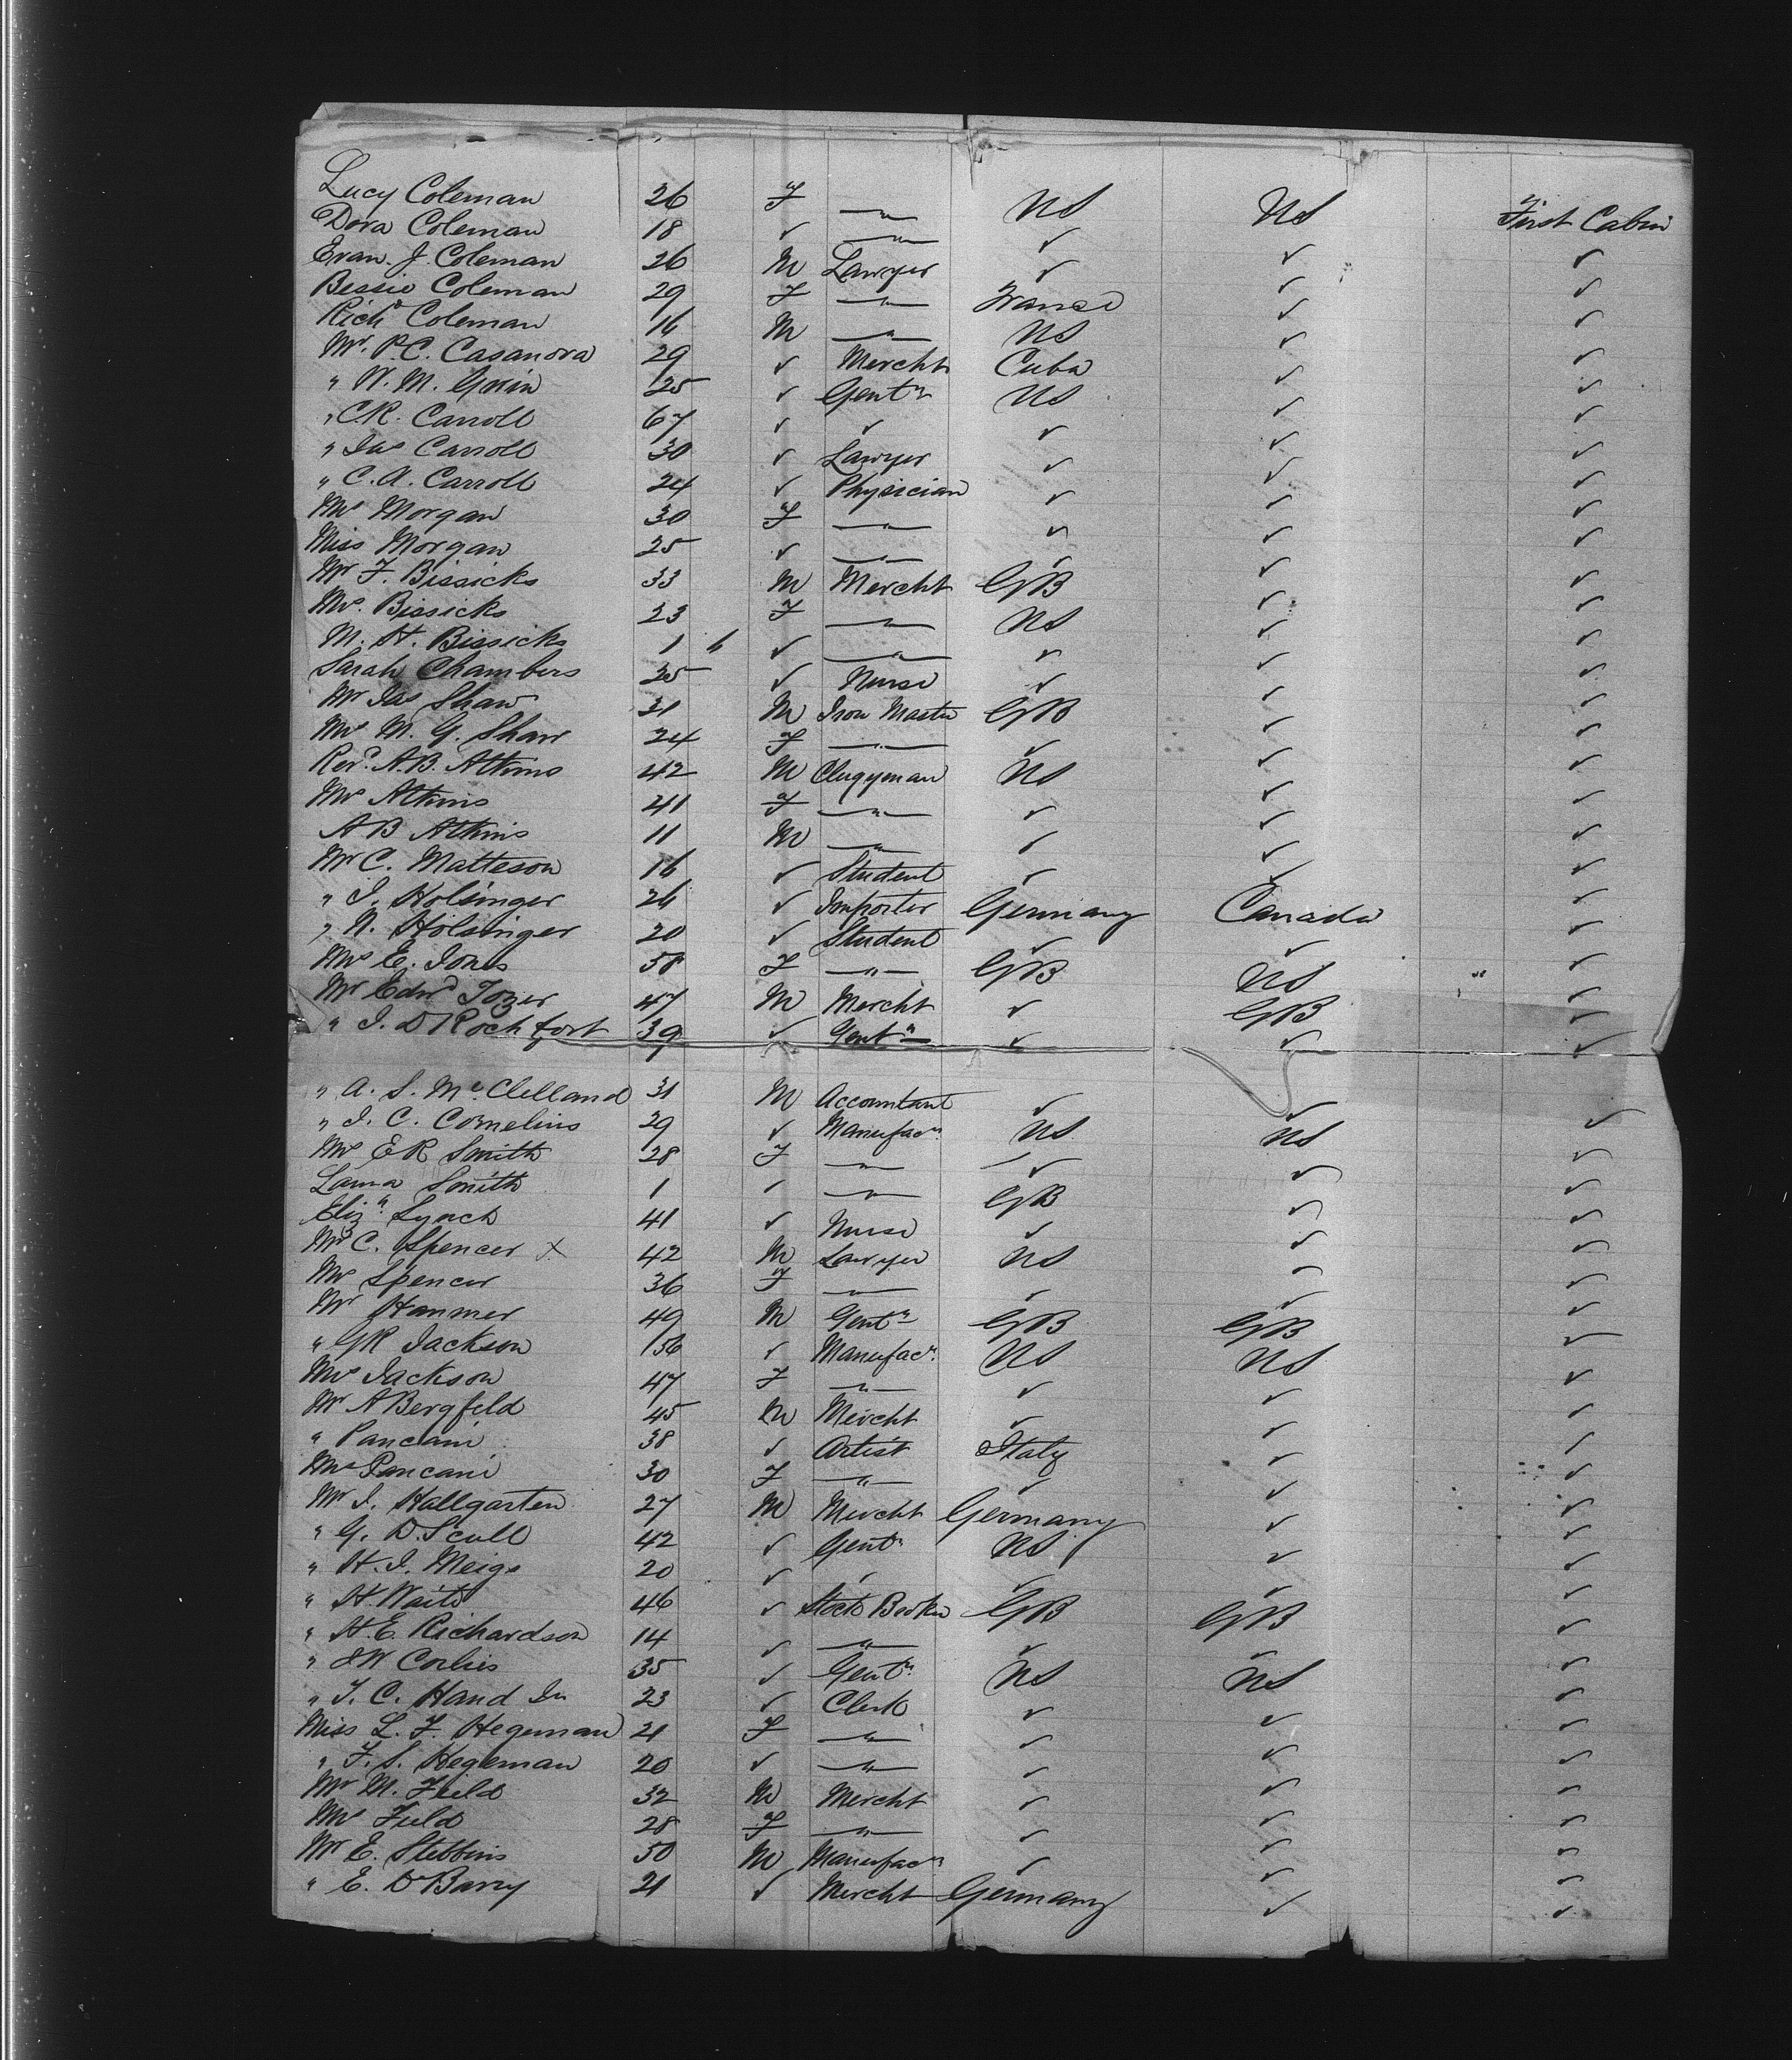 Lucy Coleman 26 F —"— US US First Cabin
Dora Coleman 18 ✓ —"— ✓ ✓ ✓
Evan. J. Coleman 26 M Lawyer ✓ ✓ ✓
Bessie Coleman 29 F —"— France ✓ ✓
Richd Coleman 16 M —"— US ✓ ✓
Mr. P.C. Casanova 29 ✓ Mercht Cuba ✓ ✓
" W. M. 25 ✓ Gentn US ✓ ✓
" C.R. Carroll 67 ✓ ✓ ✓ ✓ ✓
" Jas Carroll 30 ✓ Lawyer ✓ ✓ ✓
" C. A. Carroll 24 ✓ Physician ✓ ✓ ✓
Mrs Morgan 30 F —"— ✓ ✓ ✓
Miss Morgan 25 ✓ —"— ✓ ✓ ✓
Mr F. Bissicks 33 M Mercht GB ✓ ✓
Mrs. Bissicks 23 F —"— US ✓ ✓
M. H. Bissicks 1 6 ✓ —"— ✓ ✓ ✓
Sarah Chambers 25 ✓ Nurse ✓ ✓ ✓
Mr Jas Shaw 31 M Iron Master GB ✓ ✓
Mrs M. G. Shaw 24 F —"— ✓ ✓ ✓
Revd. A.B. Atkins 42 M Clergyman US ✓ ✓
Mrs Atkins 41 F —"— ✓ ✓ ✓
A B Atkins 11 M —"— ✓ ✓ ✓
Mr C. Matteson 16 ✓ Student ✓ ✓ ✓
" J. Holsinger 26 ✓ Importer Germany Canada ✓
" N. Holsinger 20 ✓ Student ✓ ✓ ✓
Mrs E. Jones 58 F —"— GB US ✓
Mr Edwd Tozer 47 M Mercht ✓ GB ✓
" J. D Rochfort 39 ✓ Gentn ✓ ✓ ✓
" A. S. McClelland 31 M Accountant ✓ ✓ ✓
" J. C. Cornelius 29 ✓ Manufacr. US US ✓
Mrs E R Smith 28 F —"— ✓ ✓ ✓
Laura Smith 1 ✓ —"— GB ✓ ✓
Eliza Lynch 41 ✓ Nurse ✓ ✓ ✓
Mr C. Spencer X 42 M Lawyer US ✓ ✓
Mrs Spencer 36 F —"— ✓ ✓ ✓
Mr Hanmer 49 M Gentn GB GB ✓
" GR Jackson 56 ✓ Manufacr. US US ✓
Mrs Jackson 47 F —"— ✓ ✓ ✓
Mr A Bergfeld 45 M Mercht ✓ ✓ ✓
" Pancani 38 ✓ Artist Italy ✓ ✓
Mrs Pancani 30 F —"— ✓ ✓ ✓
Mr J. Hallgarten 27 M Mercht Germany ✓ ✓
" G. D. Scull 42 ✓ Gentn US ✓ ✓
" H. J. Meigs 20 ✓ ✓ ✓ ✓ ✓
" H. Waite 46 ✓ Stock Broker GB GB ✓
" H. E. Richardson 14 ✓ —"— ✓ ✓ ✓
" J W Corlies 35 ✓ Gentn US US ✓
" T. C. Hand Jn 23 ✓ Clerk ✓ ✓ ✓
Miss L. F. Hegeman 21 F —"— ✓ ✓ ✓
" F. S. Hegeman 20 ✓ —"— ✓ ✓ ✓
Mr M. Field 32 M Mercht ✓ ✓ ✓
Mrs Field 28 F —"— ✓ ✓ ✓
Mr E. Stebbins 50 M Manufacr ✓ ✓ ✓
" E. D Barry 21 ✓ Mercht Germany ✓ ✓